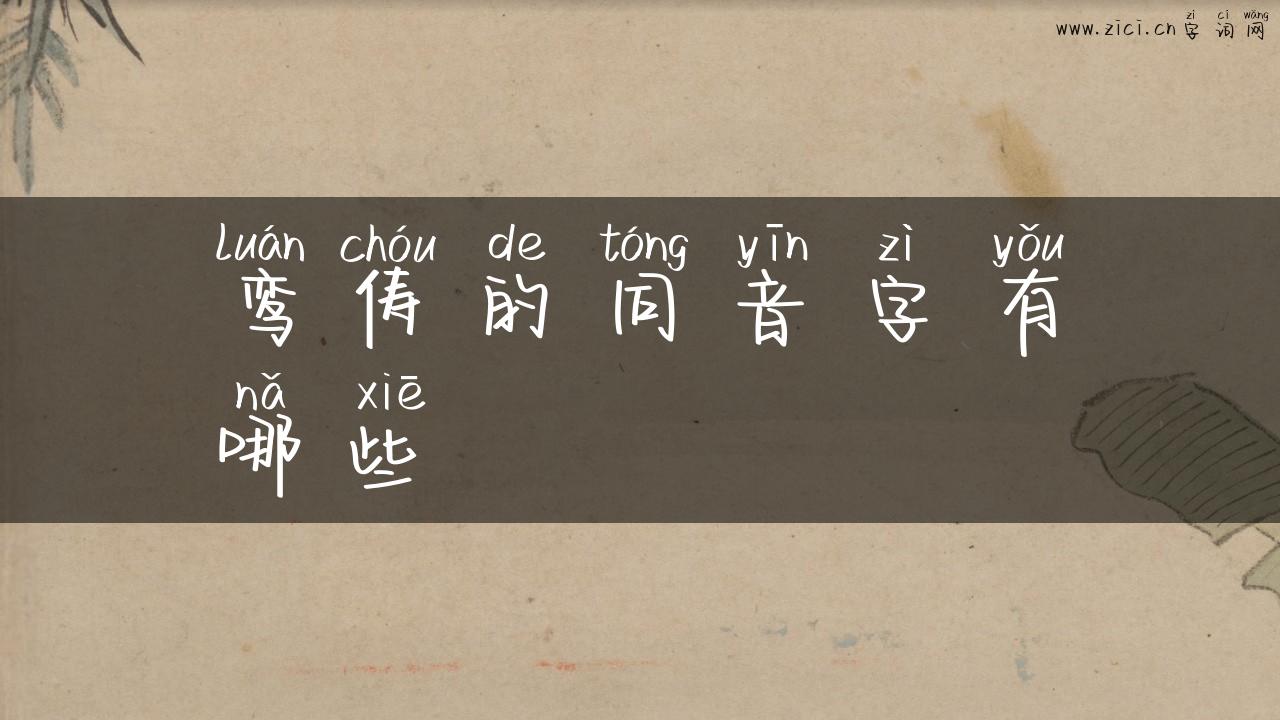 zì cí wǎng
www.zici.cn 字词网
luán chóu de tóng yīn zì yǒu
鸾俦的同音字有
nǎ xiē
哪些